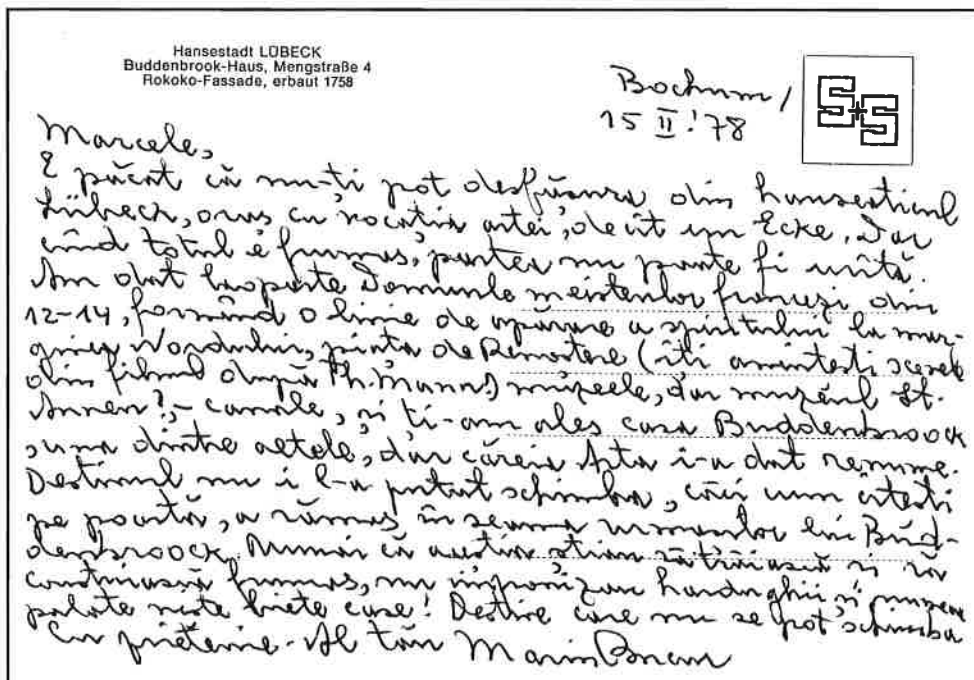 Hansestadt LÜBECK
Buddenbrook-Haus, Mengstraße 4
Rokoko-Fassade, erbaut 1758
Bochum/
15 II.'78
S+S
Marcele,
E păcat că nu-ți pot desfășura din hanseaticul
Lübeck, oraș cu vocația artei, decît un Ecke. Dar
cînd totul e frumos, partea nu poate fi urîtă.
Am dat Domurile meșterilor francezi din
12-14, formînd o linie de apărare a spiritului la mar-
ginea Nordului, piața de (îți amintești scenele
din filmul după Th. Mann?) muzeele, dar muzeul St.
Annen! - canale, și ți-am ales casa Buddenbroock
, una dintre altele, dar căreia Arta i-a dat renume.
Destinul nu i l-a putut schimba, căci cum citești
pe poartă, a rămas în seama urmașilor lui Bud-
denbroock. Numai că aceștia știau să trăiască și să
construiască frumos, nu improvizau și
palate niște biete case! Destine care nu se pot schimba
Cu prietenie. Al tău Marin